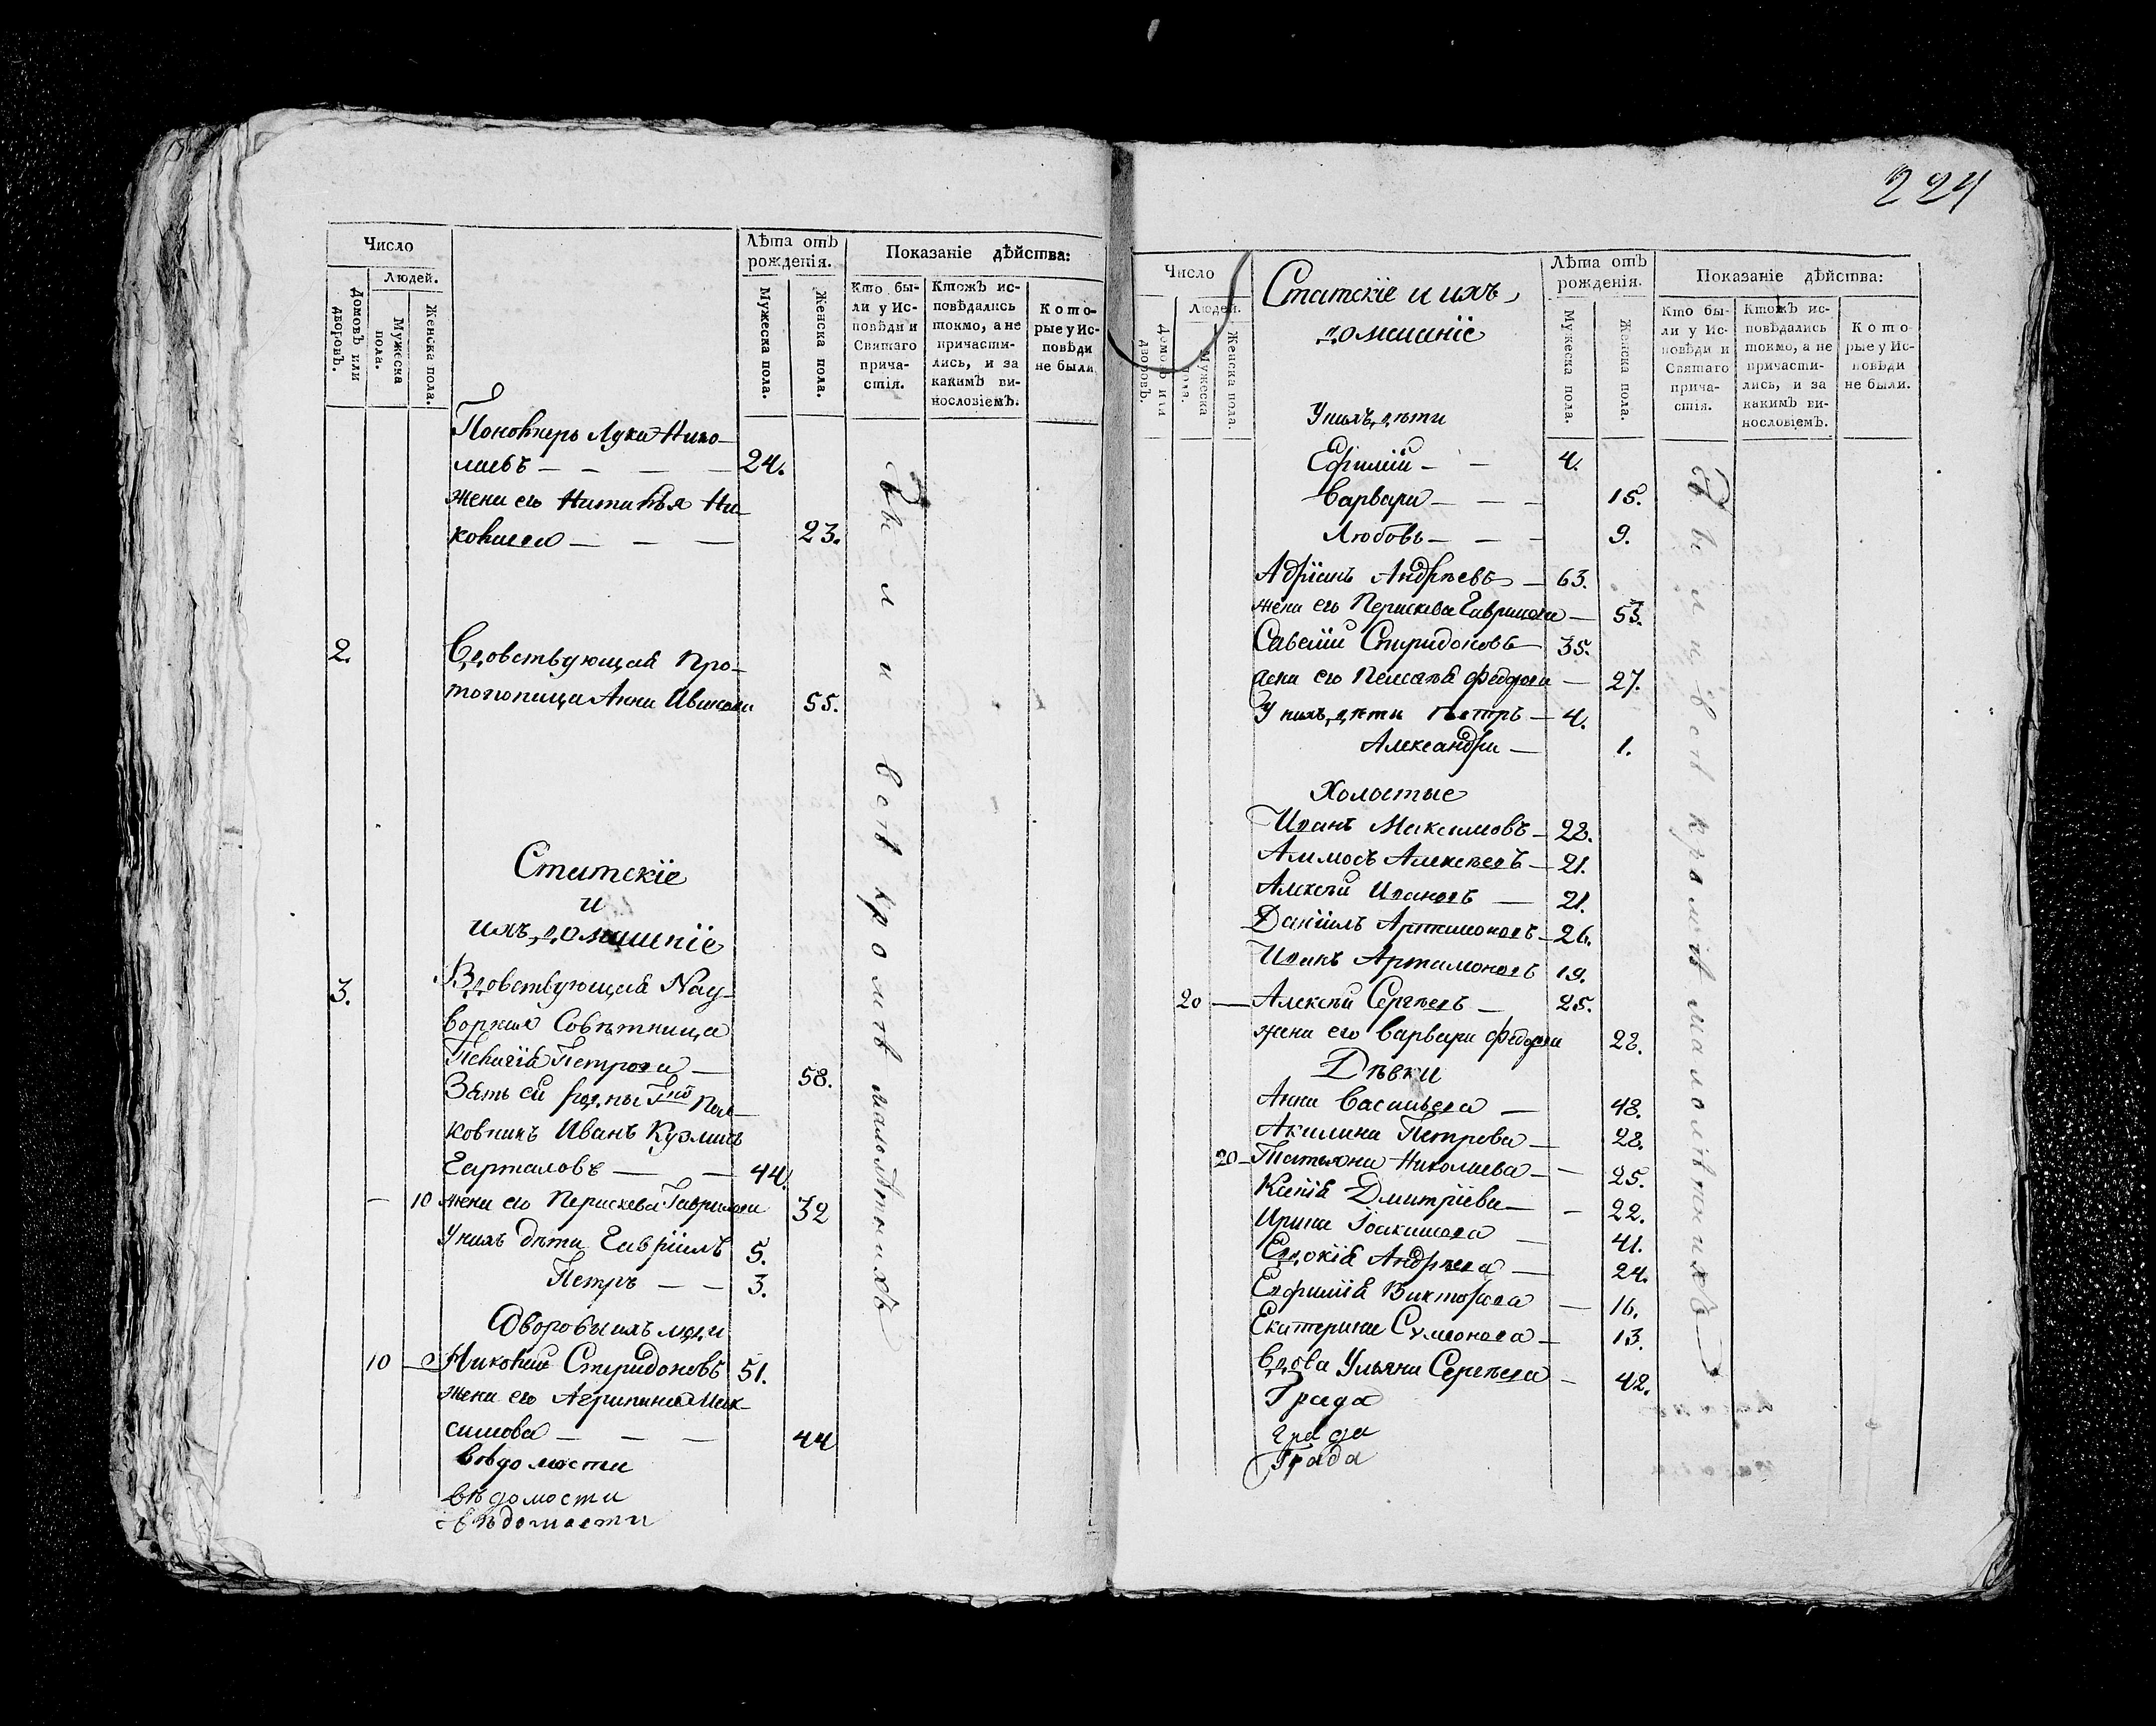 Число
Людей.
Домовъ или дворовъ.
Мужеска пола.
Женска пола.
Лѣта отъ рожденія.
Мужеска пола.
Женска пола.
Показаніе дѣйства:
Кто были у Исповѣди и Святаго причастія.
Ктожъ исповѣдались токмо, а не причастились, и за какимъ винословіемъ.
Которые у Исповѣди не были
Пономарь Лука Нико-
лаевъ — — — — 24.
жена его Наталья Ни-
коваева — — — 23.
2. Вдовствующая Про-
топопица Анна Иванова 55.
Статскіе
и
ихъ домашніе
3. Вдовствующая Над-
ворная Совѣтница
Петрова — 58.
Зять ей
ковникъ Иванъ Кузмичъ
— — 44.
— 10 жена его Параскева Гаврилова 32
У нихъ дѣти Гавріилъ 5.
Петръ — — 3.
Дворовыихъ люди
10 — Спиридоновъ 51.
жена его Агрипина Мак-
симова — — — 44
вѣдомости
вѣдомости
вѣдомости
Были всѣ кромѣ малолѣтнихъ
224
Число
Людей.
Домовъ или дворовъ.
Мужеска пола.
Женска пола.
Статскіе и ихъ
домашніе
Лѣта отъ рожденія.
Мужеска пола.
Женска пола.
Показаніе дѣйства:
Кто были у Исповѣди и Святаго причастія.
Ктожъ исповѣдались токмо, а не причастились, и за какимъ винословіемъ.
Которые у Исповѣди не были.
У нихъ дѣти
Ефимій — — 4.
Варвара — — — 15.
Любовь — — — 9.
Адріанъ Андреевъ — 63.
жена его Параскева Гаврилова — 53.
Савелій Спиридоновъ — 35.
жена его Пелагея Федорова — 27.
У нихъ дѣти Петръ — 4.
Александра — 1.
Холостые
Иванъ Максимовъ — 28.
Аммосъ Алексѣевъ — 21.
Алексѣй Ивановъ — 21.
Даніилъ Артамоновъ — 26.
Иванъ Артамоновъ 19.
20 — Алексѣй Сергѣевъ — 25.
жена его Варвара Федорова 28.
Дѣвки
Анна Васильева — 48.
Акилина Петрова — 28.
20 — Татьяна Николаева — — 25.
Ксенія Дмитріева — — 22.
Ирина Іоакимова — 41.
Евдокія Андреева — 24.
Евфимія Викторова — 16.
Екатерина Сумеонова — 13.
Вдова Ульяна Сергѣева — 42.
Града
града
Града
Были всѣ кромѣ малолѣтнихъ